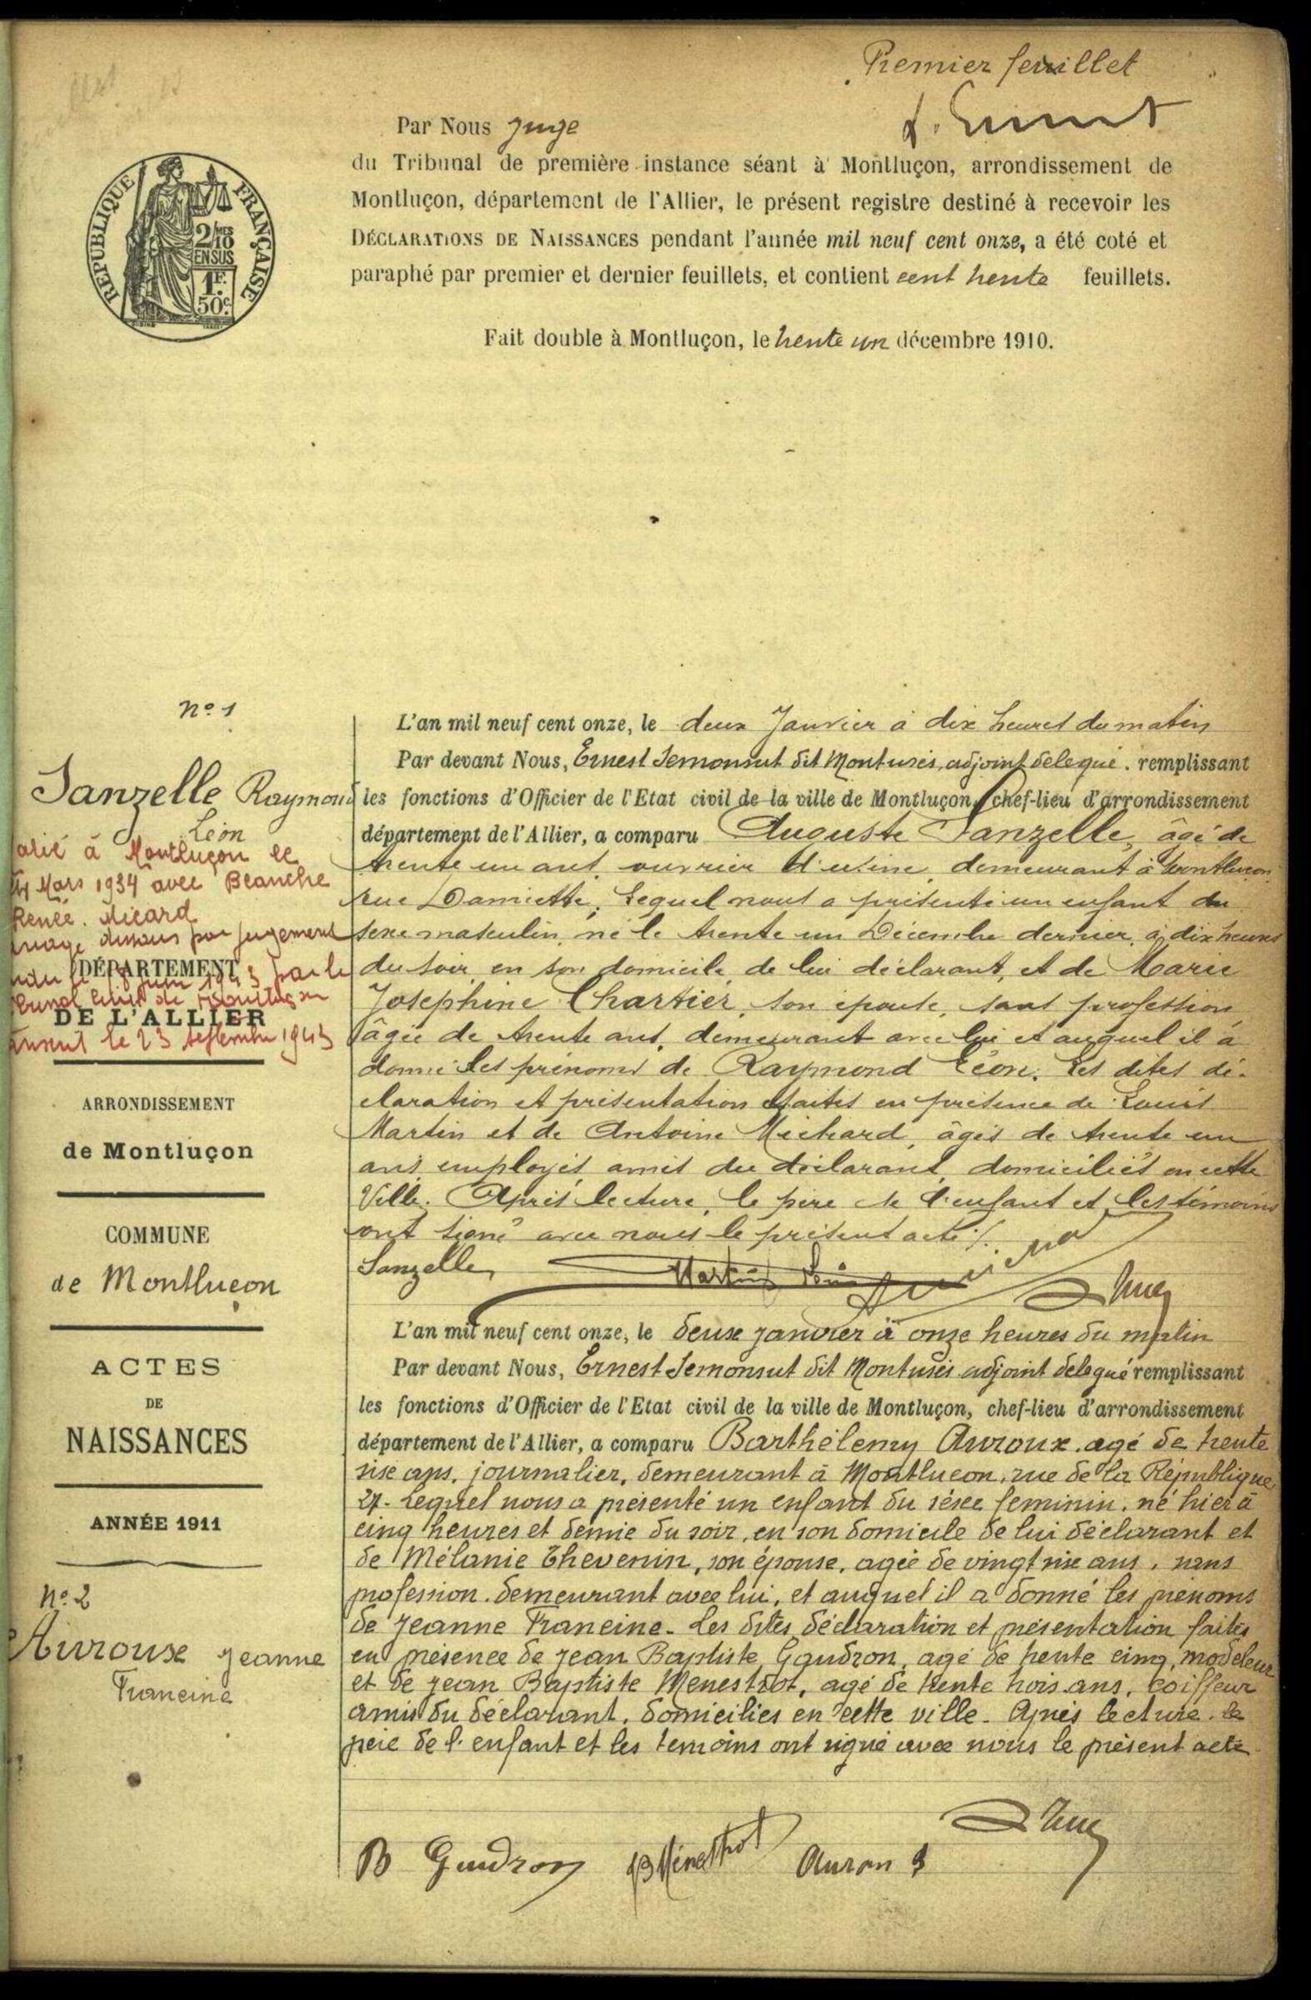 Premier feuillet
Par Nous Juge
du Tribunal de première instance séant à Montluçon, arrondissement de
Montluçon, département de l'Allier, le présent registre destiné à recevoir les
DÉCLARATIONS DE NAISSANCES pendant l'année mil neuf cent onze, a été coté et
paraphé par premier et dernier feuillets, et contient cent trente feuillets.
Fait double à Montluçon, le trente un décembre 1910.
RÉPUBLIQUE FRANÇAISE
2/10 EN SUS
1F 50c
No 1
Sanzelle Raymond
Léon
Marié à Montluçon le
Mars 1934 avec Blanche
Renée Micard
dissous par jugement
juin 1943 par le
le 23 septembre 1943
DÉPARTEMENT
DE L'ALLIER
ARRONDISSEMENT
de Montluçon
COMMUNE
de Montluçon
ACTES
DE
NAISSANCES
ANNÉE 1911
No 2
Auroux Jeanne
Francine
L'an mil neuf cent onze, le deux Janvier à dix heures du matin
Par devant Nous, Ernest Semonsut dit Montusès, adjoint délégué. remplissant
les fonctions d'Officier de l'Etat civil de la ville de Montluçon, chef-lieu d'arrondissement
département de l'Allier, a comparu Auguste Sanzelle, âgé de
trente un ans, ouvrier d'usine, demeurant à Montluçon
rue Damiette, lequel nous a présenté un enfant du
sexe masculin, né le trente un Décembre dernier, à dix heures
du soir, en son domicile de lui déclarant, et de Marie
Joséphine Chartier, son épouse, sans profession
âgée de trente ans, demeurant avec lui et auquel il a
donné les prénoms de Raymond Léon. Les dites dé-
claration et présentation faites en présence de Louis
Martin et de Antoine Michard, âgés de trente un
ans employés amis du déclarant, domiciliés en cette
Ville. Après lecture, le père de l'enfant et les témoins
ont signé avec nous le présent acte ./.
Sanzelle Martin Louis
L'an mil neuf cent onze, le deux janvier à onze heures du matin
Par devant Nous, Ernest Semonsut dit Montusès adjoint délégué remplissant
les fonctions d'Officier de l'Etat civil de la ville de Montluçon, chef-lieu d'arrondissement
département de l'Allier, a comparu Barthélemy Auroux, agé de trente
six ans, journalier, demeurant à Montluçon, rue de la République
27. Lequel nous a présenté un enfant du sexe feminin, né hier à
cinq heures et demie du soir, en son domicile de lui déclarant et
de Mélanie Thevenin, son épouse, agée de vingt six ans, sans
profession, demeurant avec lui, et auquel il a donné les prenoms
de Jeanne Francine. Les dites déclaration et présentation faites
en présence de Jean Baptiste Gaudron, agé de trente cinq, modeleur
et de Jean Baptiste Menestrot, agé de trente trois ans, coiffeur
amis du déclarant, domiciliés en cette ville. Après lecture, le
père de l'enfant et les temoins ont signé avec nous le présent acte
B Gaudron JB Ménestrot Auroux